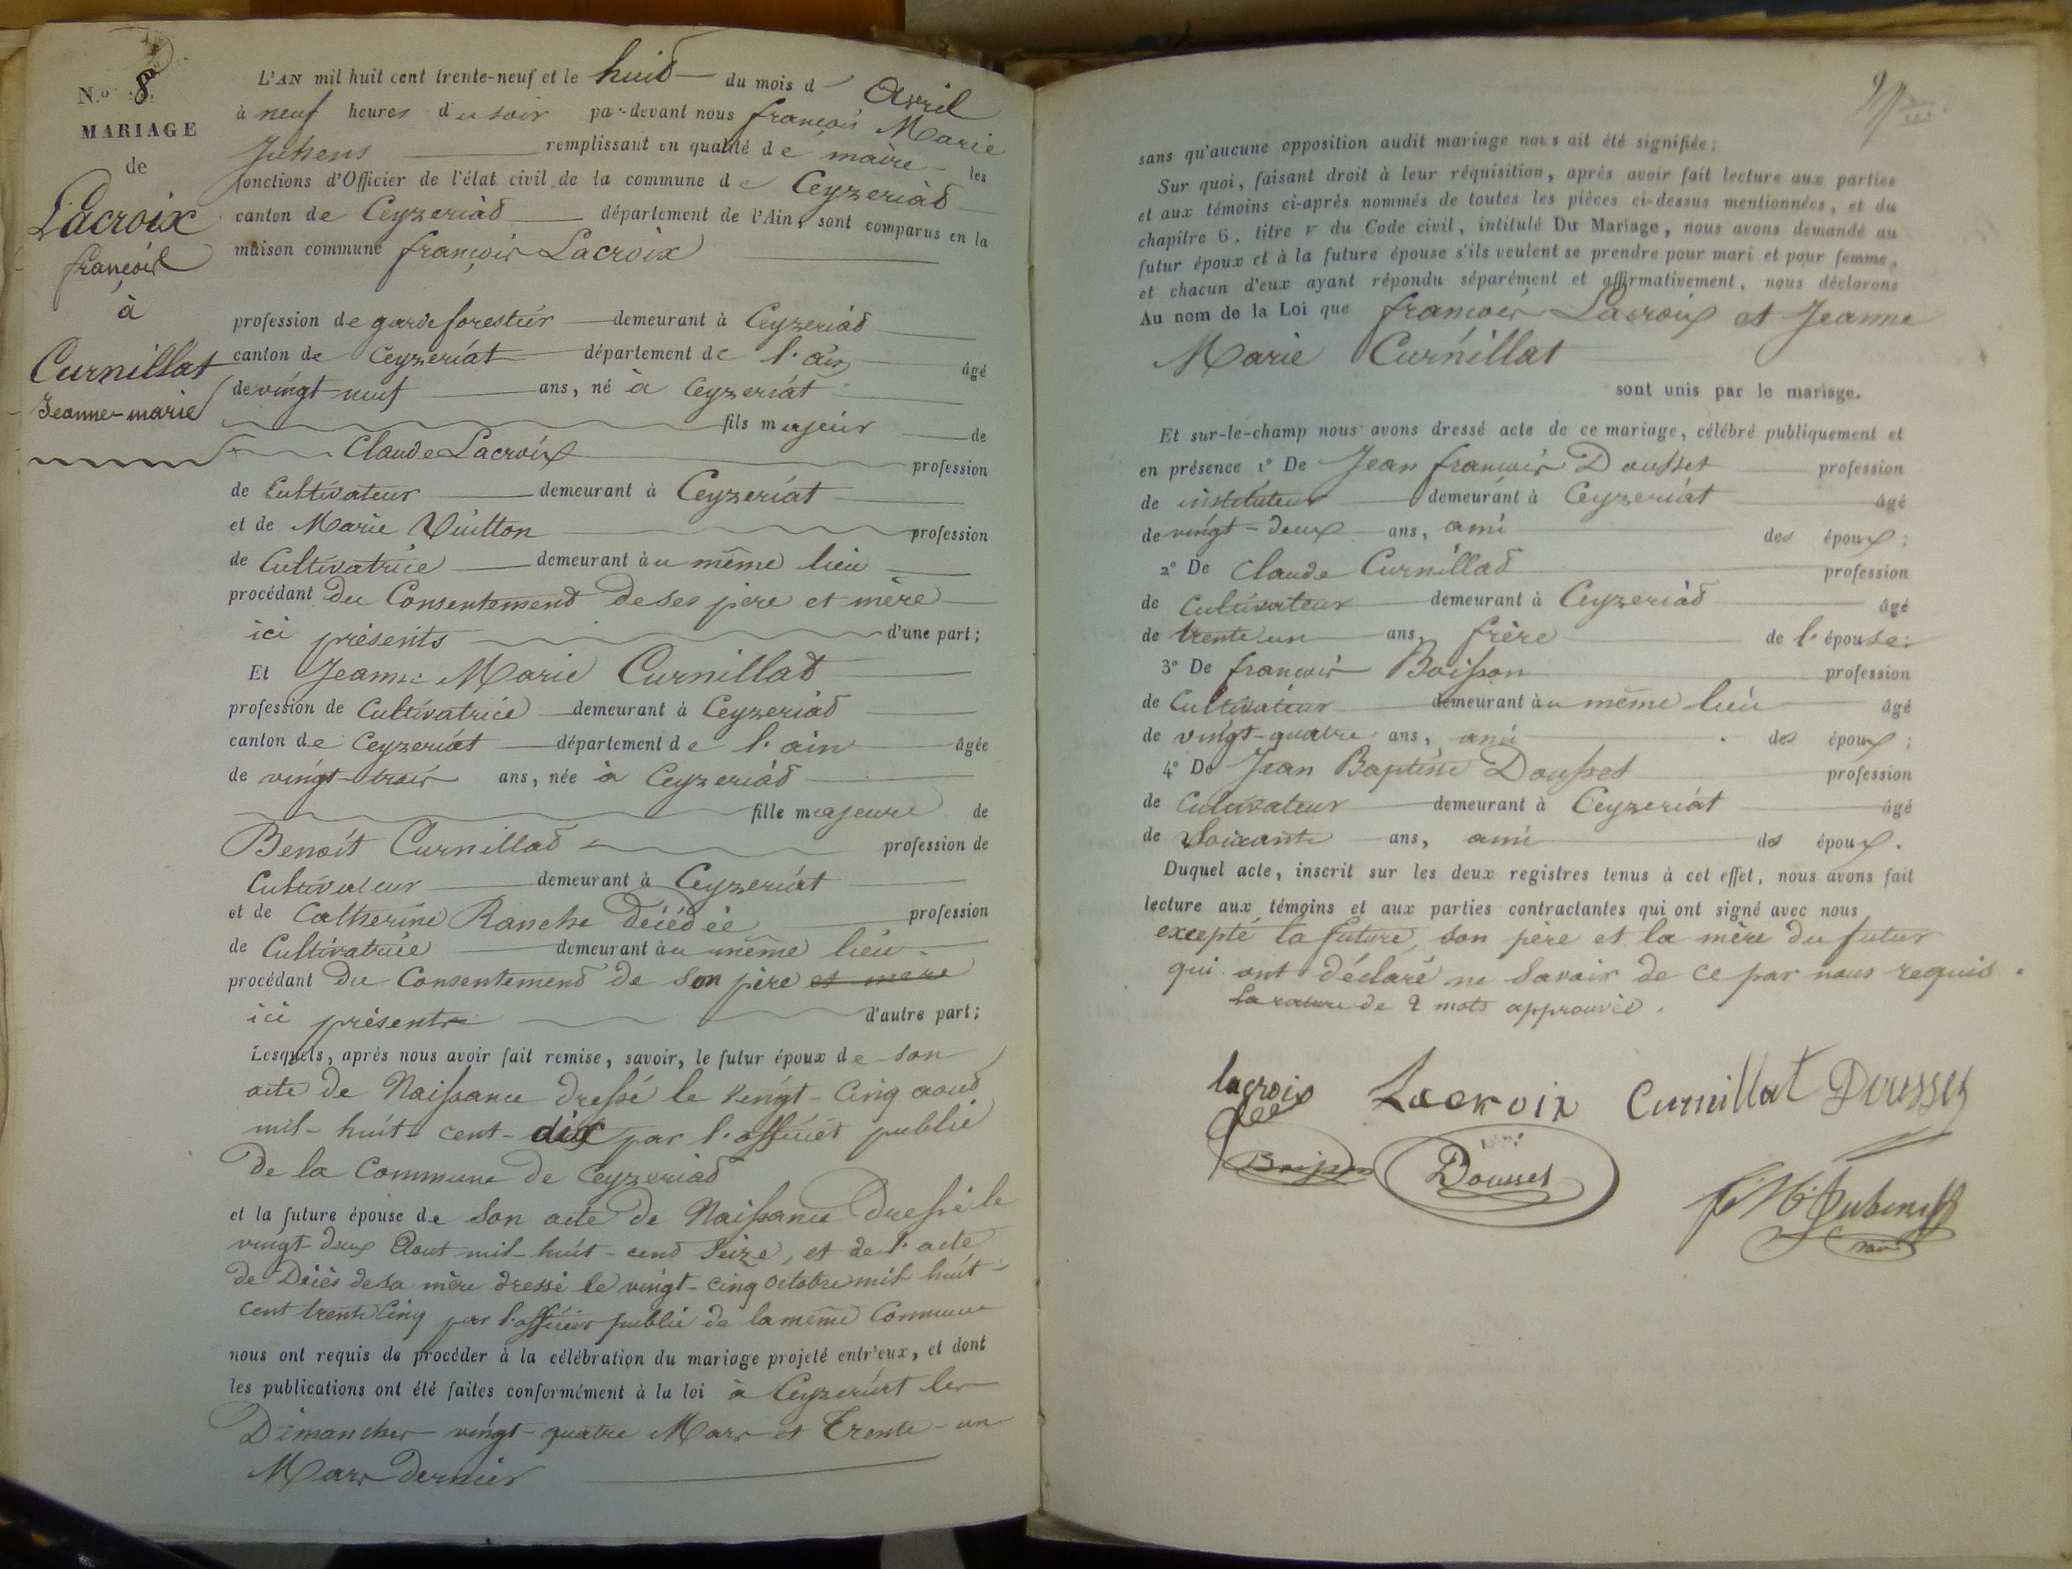 N.º 8
MARIAGE
de
Lacroix
françois
à
Curnillat
Jeanne-marie
L'AN mil huit cent trente-neuf et le huid du mois d Avril
à neuf heures du soir par-devant nous françois Marie
remplissant en qualité de maire les
fonctions d'Officier de l'état civil de la commune de Ceyzeriad
canton de Ceyzeriad département de l'Ain, sont comparus en la
maison commune françois Lacroix
profession de garde forestier demeurant à Ceyzeriad
canton de Ceyzeriat département de l'ain âgé
de vingt-neuf ans, né à Ceyzeriat
fils majeur de
Claude Lacroix profession
de Cultivateur demeurant à Ceyzeriat
et de Marie Vuitton profession
de Cultivatrice demeurant au même lieu
procédant du Consentement de ses père et mère
ici présents d'une part;
Et Jeanne Marie Curnillad
profession de Cultivatrice demeurant à Ceyzeriad
canton de Ceyzeriat département de l'ain âgée
de vingt-trois ans, née à Ceyzeriad
fille majeure de
Benoit Curnillad profession de
Cultivateur demeurant à Ceyzeriat
et de Catherine Ranche décédée profession
de Cultivatrice demeurant au même lieu
procédant du Consentement de son père et mère
ici présents d'autre part;
Lesquels, après nous avoir fait remise, savoir, le futur époux de son
acte de Naissance dressé le vingt-cinq aoud
mil-huit-cent-dix par l'officier public
de la Commune de Ceyzeriad
et la future épouse de son acte de Naissance dressé le
vingt-deux Aout mil-huit-cend Seize, et de l'acte
de Décès de sa mère dressé le vingt-cinq Octobre mil huit-
cent trente Cinq par l'officier public de la même Commune
nous ont requis de procéder à la célébration du mariage projeté entr'eux, et dont
les publications ont été faites conformément à la loi à Ceyzeriat les
Dimanches vingt-quatre Mars et Trente-un
Mars dernier
sans qu'aucune opposition audit mariage nous ait été signifiée;
Sur quoi, faisant droit à leur réquisition, après avoir fait lecture aux parties
et aux témoins ci-après nommés de toutes les pièces ci-dessus mentionnées, et du
chapitre 6, titre v du Code civil, intitulé Du Mariage, nous avons demandé au
futur époux et à la future épouse s'ils veulent se prendre pour mari et pour femme,
et chacun d'eux ayant répondu séparément et affirmativement, nous déclarons
Au nom de la Loi que françois Lacroix et Jeanne
Marie Curnillat
sont unis par le mariage.
Et sur-le-champ nous avons dressé acte de ce mariage, célébré publiquement et
en présence 1º De Jean françois Dousset profession
de instituteur demeurant à Ceyzeriat âgé
de vingt-deux ans, ami des époux;
2º De Claude Curnillad profession
de Cultivateur demeurant à Ceyzeriad âgé
de trente un ans, frère de l'épouse:
3º De françois Boisson profession
de Cultivateur demeurant au même lieu âgé
de vingt-quatre ans, ami des époux;
4º De Jean Baptiste Dousset profession
de Cultivateur demeurant à Ceyzeriat âgé
de Soixante ans, ami des époux.
Duquel acte, inscrit sur les deux registres tenus à cet effet, nous avons fait
lecture aux témoins et aux parties contractantes qui ont signé avec nous
excepté la future, son père et la mère du futur
qui ont déclaré ne savoir de ce par nous requis.
La rature de 2 mots approuvée.
lacroix Lacroix Curnillat Dousset
Boisson Dousset